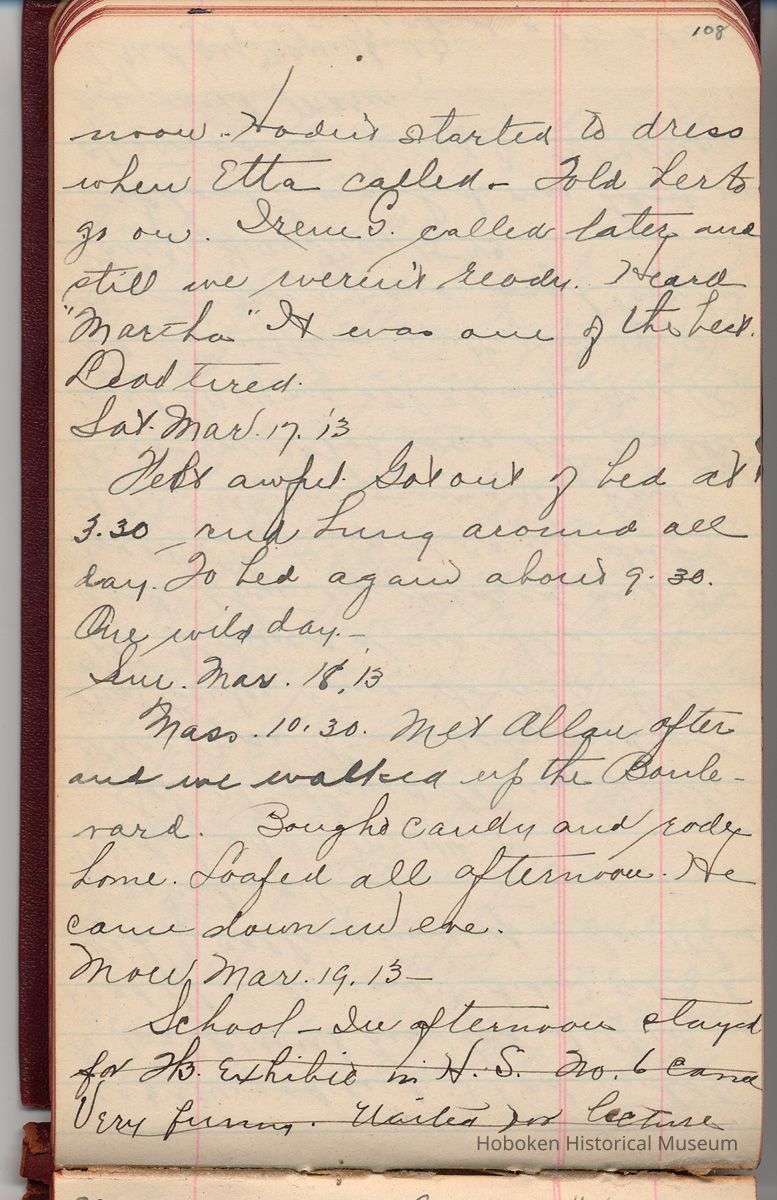 108
noon. Hadn't started to dress
when Etta called - Told her to
go on. Irene G. called later and
still we weren't ready. Heard
"Martha" It was one of the best.
Dead tired.
Sat. Mar. 17. '13
Felt awful. Got out of bed at
3.30 and hung around all
day. To bed again about 9.30.
One wild day. -
Sun. Mar. 18, 13
Mass. 10.30. Met Allan after
and we walked up the Boule-
vard. Bought candy and rode
home. Loafed all afternoon. He
came down in eve.
Mon Mar. 19. 13 -
School - In afternoon stayed
for Tb. Exhibit in H. S. No. 6
Very funny. Waited for lecture
Hoboken Historical Museum